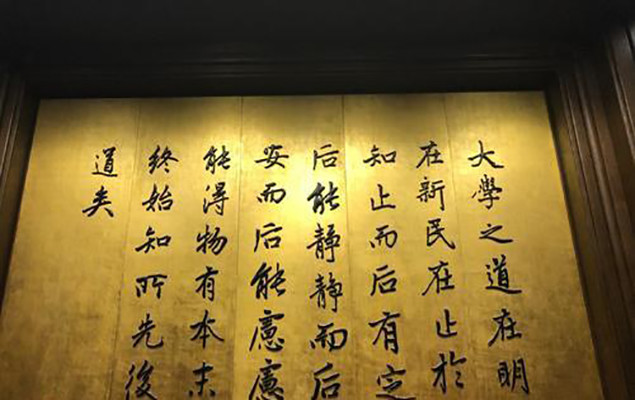 大學之道在明
在新民在止於
知止而后有定
后能靜靜而后
安而后能慮慮
能得物有本末
終始知所先後
道矣